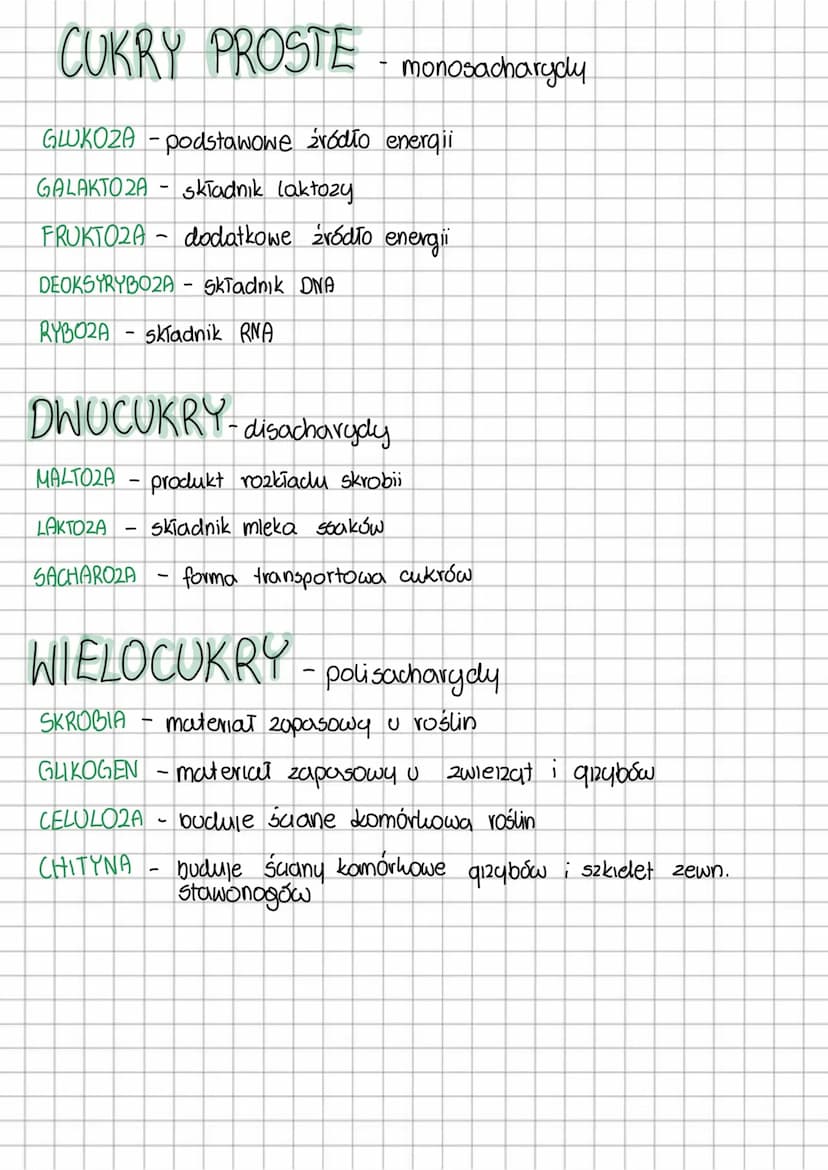 CUKRY PROSTE - monosacharydy
GLUKOZA - podstawowe źródło energii
GALAKTOZA - składnik laktozy
FRUKTOZA - dodatkowe źródło energii
DEOKSYRYBOZA - składnik DNA
RYBOZA - składnik RNA
DWUCUKRY - disacharydy
MALTOZA - produkt rozkładu skrobii
LAKTOZA - składnik mleka ssaków
SACHAROZA - forma transportowa cukrów
WIELOCUKRY - polisacharydy
SKROBIA - materiał zapasowy u roślin
GLIKOGEN - materiał zapasowy u zwierząt i grzybów
CELULOZA - buduje ściane komórkowa roślin
CHITYNA - buduje ściany komórkowe grzybów i szkielet zewn.
stawonogów